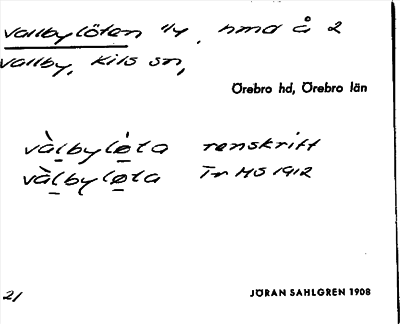 Vallbylöten 11/4, hmd å 2
Vallby, Kils sn,
Örebro hd, Örebro län
vàlbyløta renskrift
vàlbyløta Tr MS 1912
21 JÖRAN SAHLGREN 1908